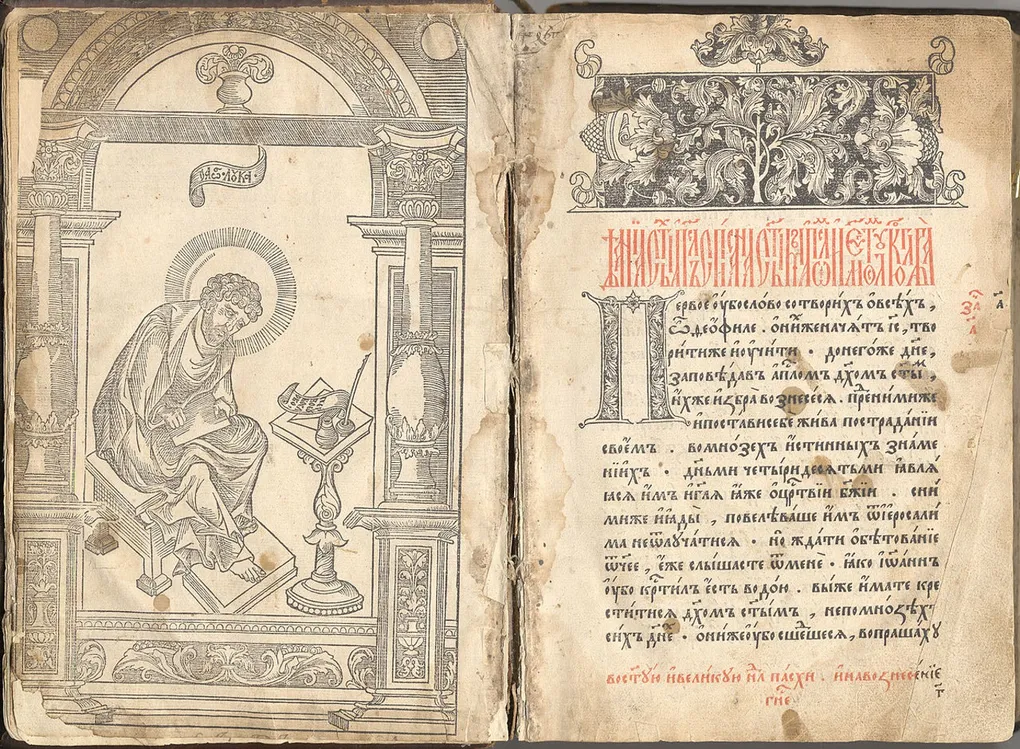 ЛУКА
Первое ᲂу҆бо сло́во сотвори́хъ ѻ҆ всѣ́хъ ,
ѽ ѳео́филе . ѡ҆ ни́хже нача́тъ і҆с҃ , тво
ри́ти же и҆ ᲂу҆чи́ти · до него́же дн҃е ,
заповѣ́давъ а҆пⷭ҇лѡмъ дх҃омъ ст҃ы́ ,
и҆́хже и҆збра̀ вознесе́сѧ . пре́ ни́миже
и҆ поста́ви себѐ жи́ва по страда́нїи
свое́мъ . во мно́зехъ и҆́стинныхъ зна́ме
нїихъ · дн҃ьми четы́ридесѧтьми ꙗ҆влѧ́
ѧсѧ и҆̀мъ и҆ гл҃ѧ ꙗ҆́же ѻ҆ црⷭ҇твїи бж҃їи . сни́
миже и҆ ꙗ҆ды̀ , повелѣва́ше и҆̀мъ ѿ і҆еросали́
ма не ѿлуча́тисѧ · но жда́ти ѻ҆бѣтова́нїе
ѿч҃ее , є҆́же слы́шасте ѿ менѐ · ꙗ҆́ко і҆ѡа́ннъ
ᲂу҆́бо крⷭ҇ти́лъ є҆́сть водо́ю . вы́ же и҆́мате кре
сти́тисѧ дх҃омъ ст҃ы́мъ , не по мно́ѕѣхъ
си́хъ дн҃е · ѻ҆ни́ же ᲂу҆́бо сше́шесѧ , вопраша́хꙋ
во ст҃ꙋ́ю и҆ вели́кꙋю нлⷧ҇ па́схи . и҆ на вознесе́нїе
гн҃е